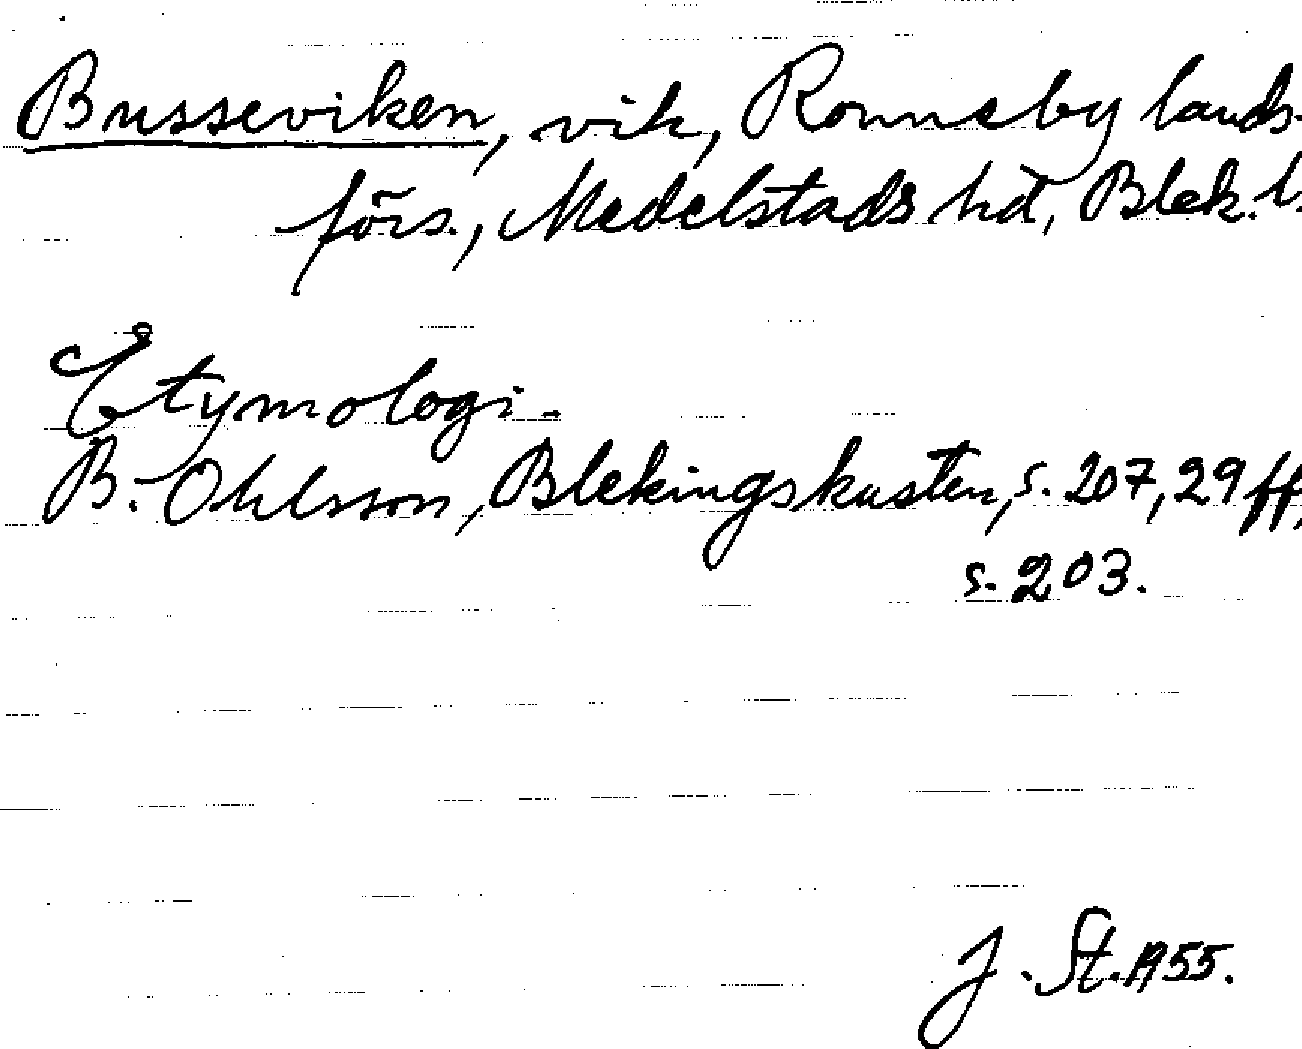 Busseviken, vik, Ronneby lands-
förs., Medelstads hd, Blek. l.
Etymologi.
B. Ohlsson, Blekingskusten, s. 207, 29 ff.
s. 203.
J. St. 1955.